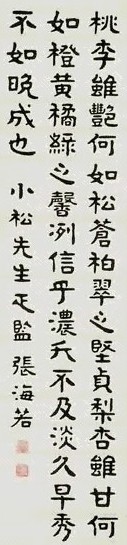 桃李雖艷何如松蒼柏翠之堅貞梨杏雖甘何
如橙黃橘綠之馨冽信乎濃夭不及淡久早秀
不如晚成也 小松先生正監 張海若